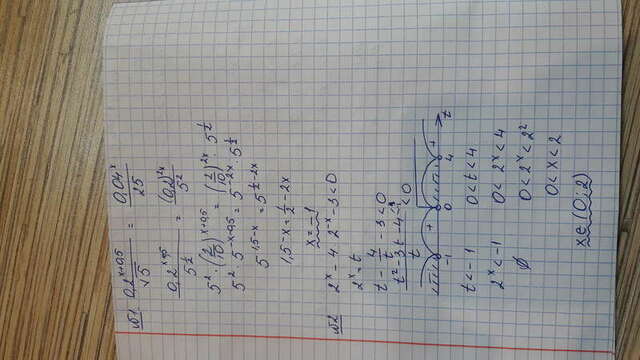 №1 0,2^(x+0,5) / √5 = 0,04^x / 25
0,2^(x+0,5) / 5^(1/2) = (0,2)^(2x) / 5^2
5^2 · (2/10)^(x+0,5) = (2/10)^(2x) · 5^(1/2)
5^2 · 5^(-x-0,5) = 5^(-2x) · 5^(1/2)
5^(1,5-x) = 5^(1/2-2x)
1,5-x = 1/2-2x
x=-1
№2 2^x - 4 · 2^(-x) - 3 < 0
2^x = t
t - 4/t - 3 < 0
(t^2-3t-4)/t < 0
-1 + 0 4 + t
t<-1 0<t<4
2^x<-1 0<2^x<4
∅ 0<2^x<2^2
0<x<2
x∈(0;2)